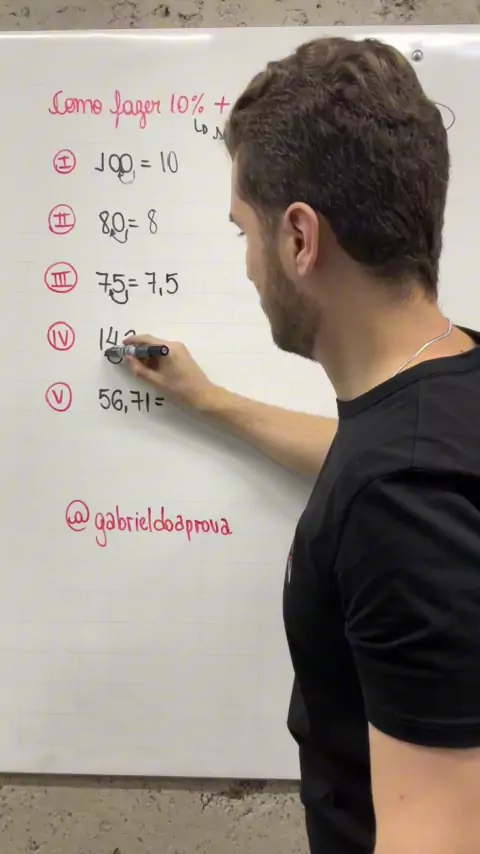 Como fazer 10% +
Ls
I 100 = 10
II 80 = 8
III 75 = 7,5
IV 14
V 56,71 =
@gabrieldoaprova